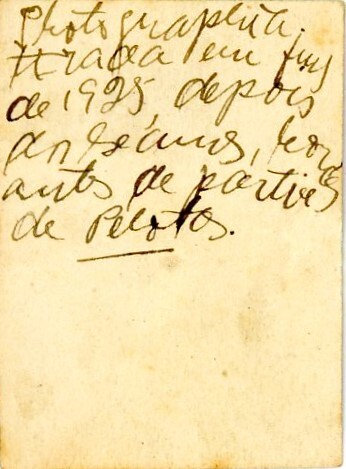 Photographia
tirada em fins
de 1925, depois
dos exames, horas
antes de partir
de Pelotas.